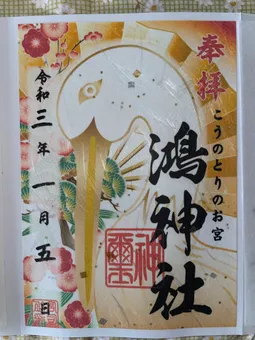 奉拝
こうのとりのお宮
鴻神社
令和三年一月五日